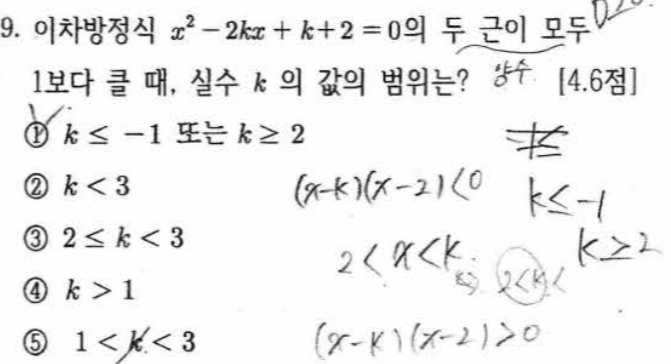 9. 이차방정식 x² - 2kx + k + 2 = 0의 두 근이 모두
1보다 클 때, 실수 k 의 값의 범위는? 양수. [4.6점]
① k ≤ -1 또는 k ≥ 2
② k < 3
(x-k)(x-2)<0
k≤-1
③ 2 ≤ k < 3
2<x<k.
2<k<
k≥2
④ k > 1
⑤ 1 < k < 3
(x-k)(x-2)>0